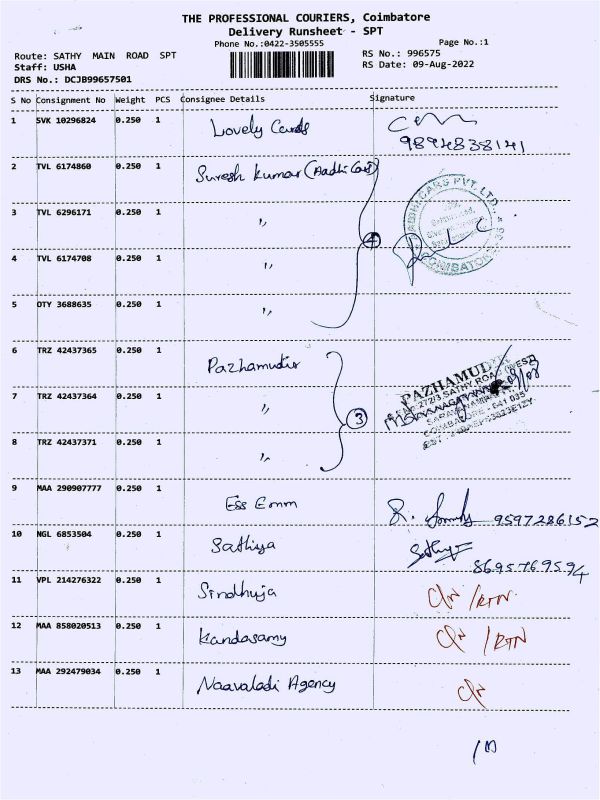 THE PROFESSIONAL COURIERS, Coimbatore
Delivery Runsheet - SPT
Phone No.:0422-3505555
Page No.:1
Route: SATHY MAIN ROAD SPT
RS No.: 996575
Staff: USHA
RS Date: 09-Aug-2022
DRS No.: DCJB99657501
S No Consignment No Weight PCS Consignee Details Signature
1 SVK 10296824 0.250 1 Lovely Cards
9894838141
2 TVL 6174860 0.250 1 Suresh Kumar (Aadhi Cars)
3 TVL 6296171 0.250 1 "
4
4 TVL 6174708 0.250 1 "
COIMBATORE
5 OTY 3688635 0.250 1 "
6 TRZ 42437365 0.250 1 Pazhamudir
7 TRZ 42437364 0.250 1 "
3
8 TRZ 42437371 0.250 1 "
9 MAA 290907777 0.250 1 Ess Emm 9597286152
10 NGL 6853504 0.250 1 Sathiya Sathya
8695769594
11 VPL 214276322 0.250 1 Sindhuja C/N /RTN
12 MAA 858020513 0.250 1 Kandasamy C/N /RTN
13 MAA 292479034 0.250 1 Naavaladi Agency C/N